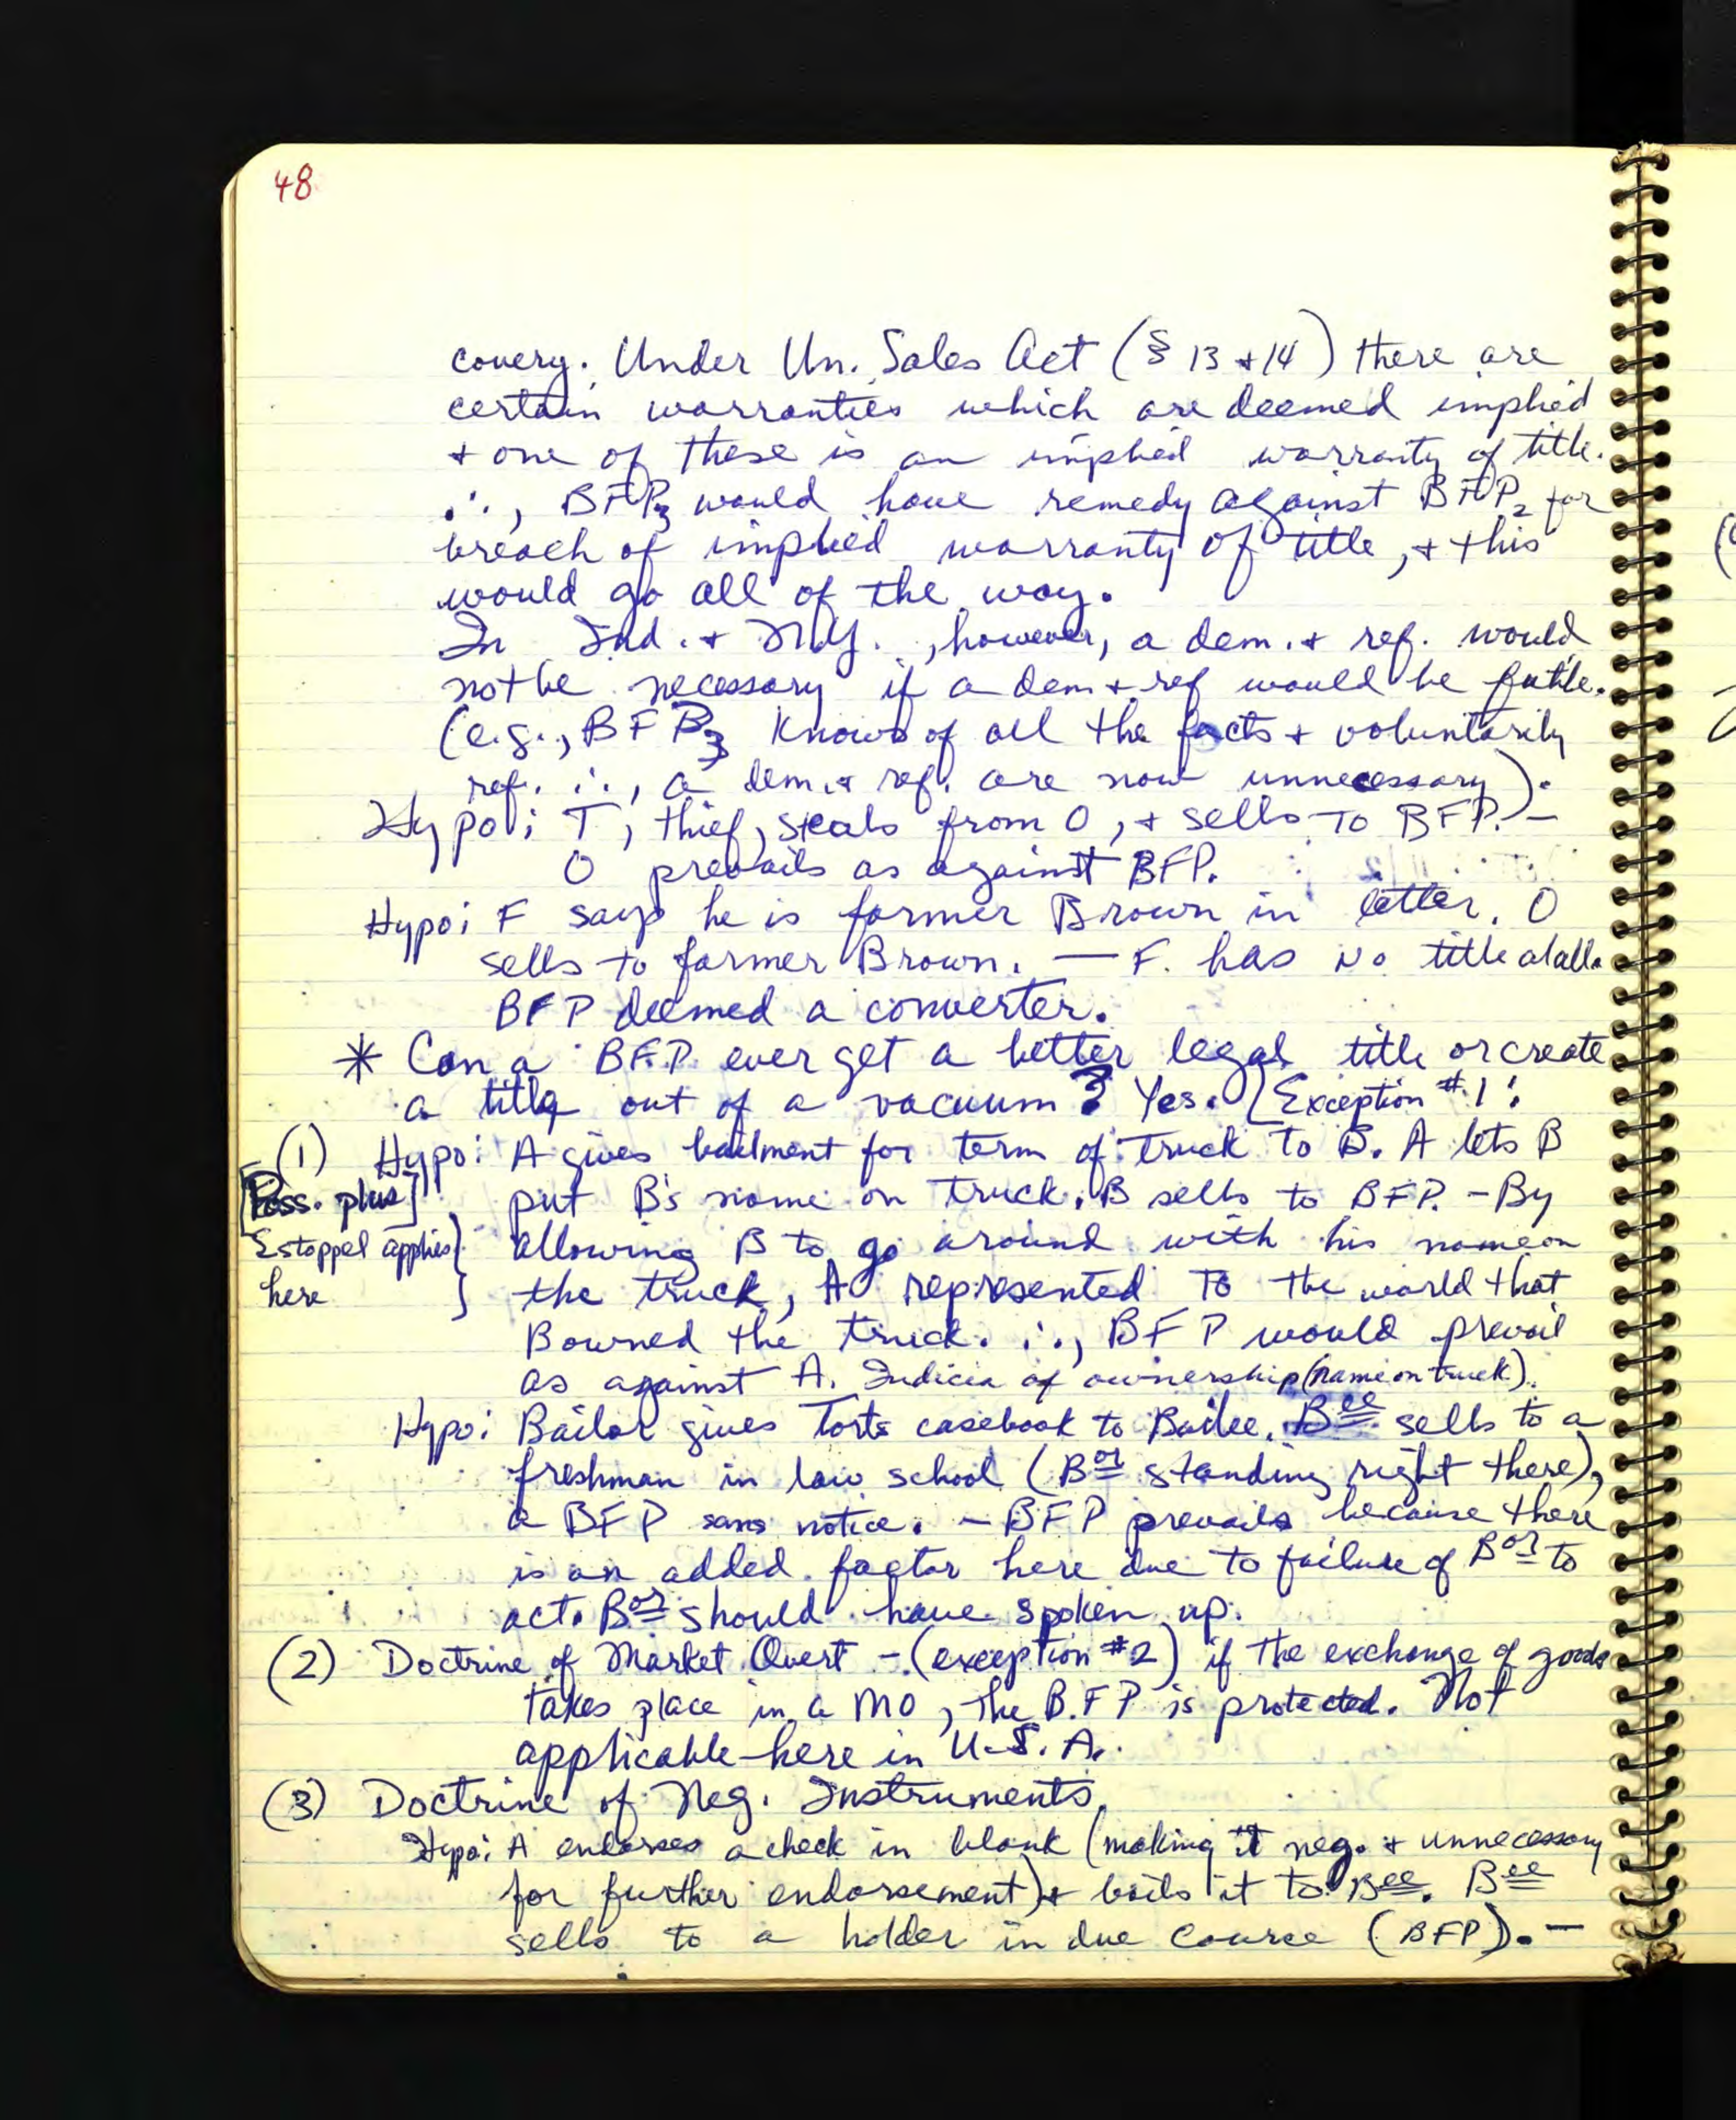 48
covery. Under Un. Sales Act (§ 13 + 14) there are
certain warranties which are deemed implied
+ one of these is an implied warranty of title.
∴, BFP3 would have remedy against BFP2 for
breach of implied warranty of title, + this
would go all of the way.
In Ind. + N.Y., however, a dem. + ref. would
not be necessary if a dem + ref would be futile.
(e.g., BFP3 knows of all the facts + voluntarily
ref. ∴, a dem. + ref. are now unnecessary).
Hypo: T, thief, steals from O, + sells to BFP. -
O prevails as against BFP.
Hypo: F says he is farmer Brown in letter. O
sells to farmer Brown. — F. has no title at all.
BFP deemed a converter.
* Can a BFP ever get a better legal title or create
a title out of a vacuum? Yes. [Exception #1:
(1) Hypo: A gives bailment for term of truck to B. A lets B
[Poss. plus] put B's name on truck. B sells to BFP. - By
Estoppel applies} allowing B to go around with his name on
here } the truck, A represented to the world that
B owned the truck. ∴, BFP would prevail
as against A. Indicia of ownership (name on truck).
Hypo: Bailor gives Torts casebook to Bailee. Bee sells to a
freshman in law school (Bor standing right there),
a BFP sans notice. - BFP prevails because there
is an added factor here due to failure of Bor to
act. Bor should have spoken up.
(2) Doctrine of Market Overt - (exception #2) if the exchange of goods
takes place in a MO, the B.F.P is protected. Not
applicable here in U.S.A.
(3) Doctrine of Neg. Instruments.
Hypo: A endorses a check in blank (making it neg. + unnecessary
for further endorsement) + bails it to Bee. Bee
sells to a holder in due course (BFP). -